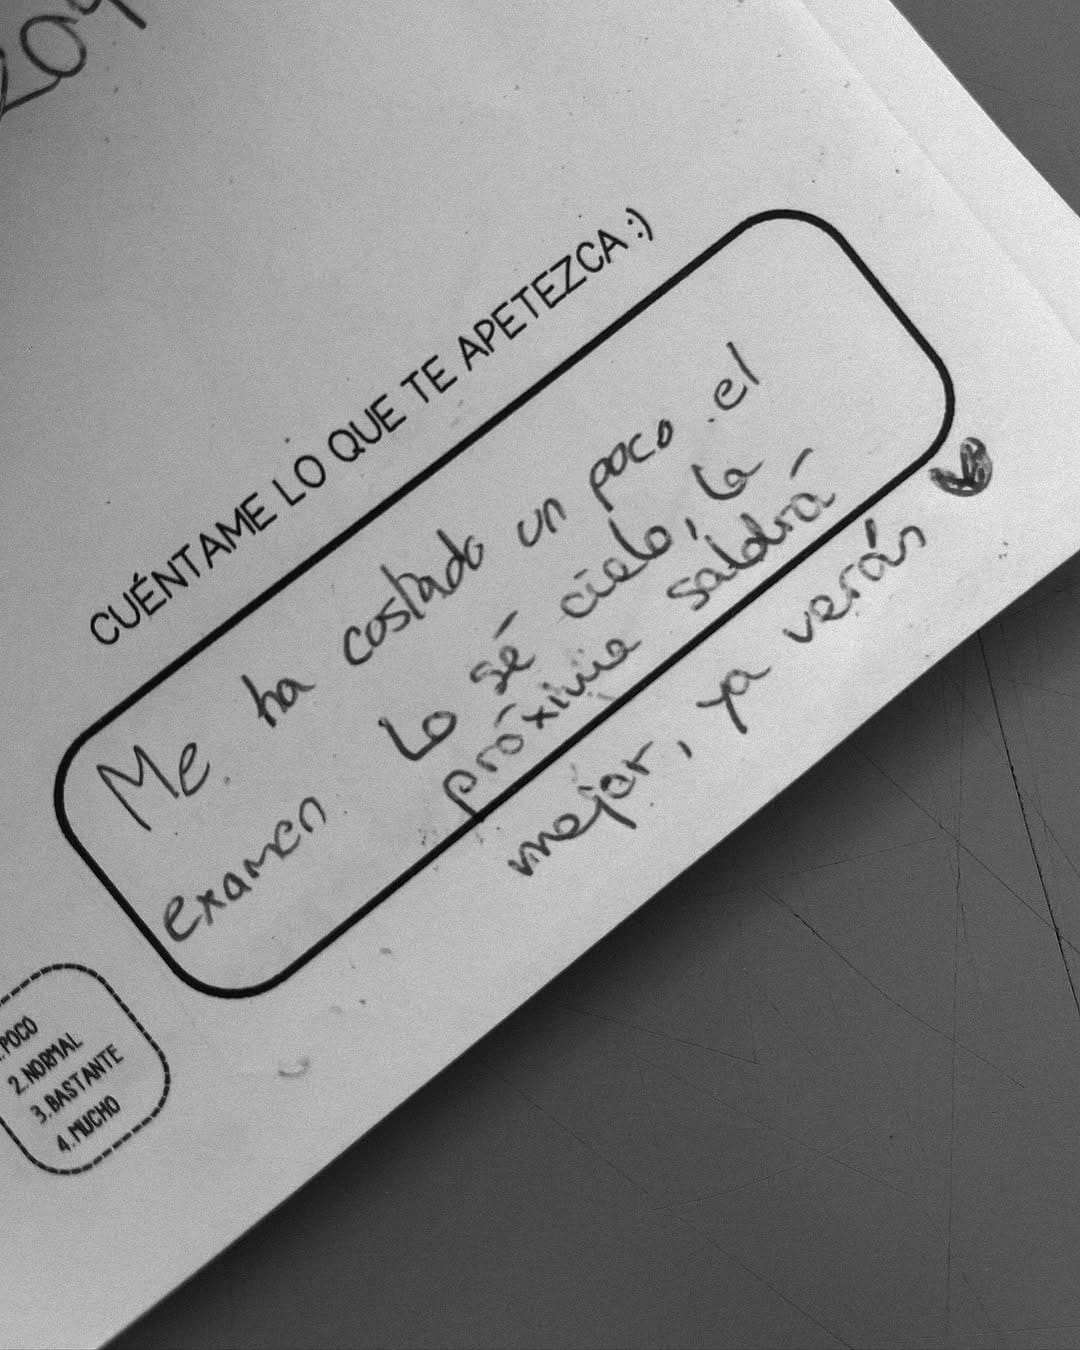 CUÉNTAME LO QUE TE APETEZCA :)
Me ha costado un poco el
examen.
Lo sé cielo, la
próxima saldrá
mejor, ya verás
1.POCO
2.NORMAL
3.BASTANTE
4.MUCHO